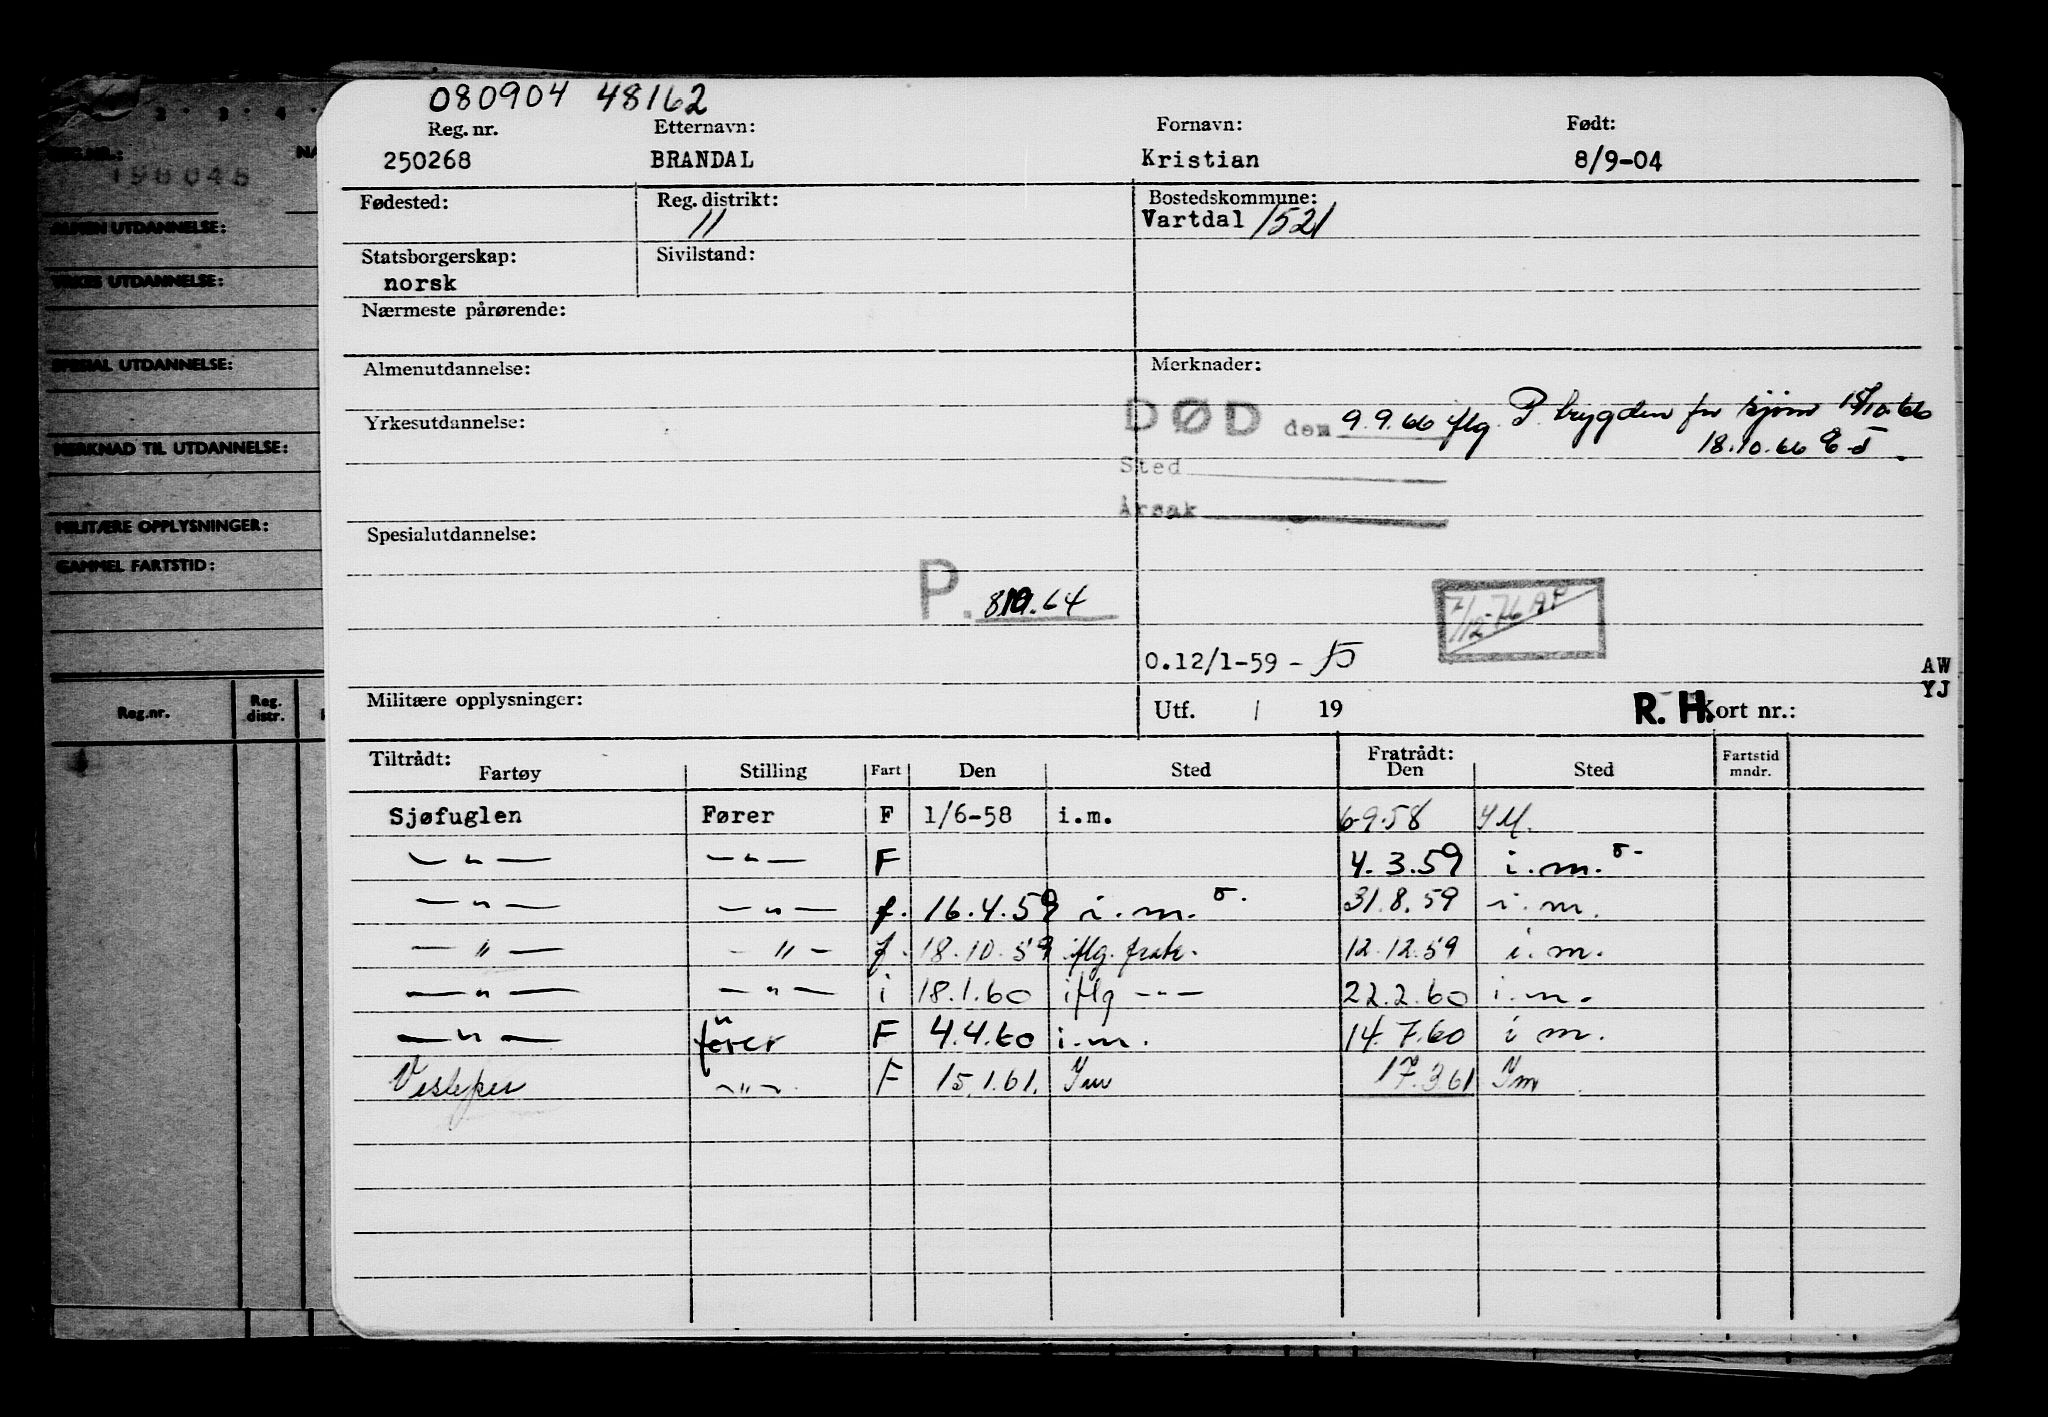 080904 48162
Reg. nr. Etternavn: Fornavn: Født:
250268 BRANDAL Kristian 8/9-04
Fødested: Reg. distrikt: Bostedskommune:
11 Vartdal 1521
Statsborgerskap: Sivilstand:
norsk
Nærmeste pårørende:
Almenutdannelse: Merknader:
DØD den 9.9.66 iflg. P. trygden for sjøm
18.10.66
Yrkesutdannelse:
Sted
Årsak
Spesialutdannelse:
P.
0.12/1-59 -
7/12-76 AP
AW
YJ
Militære opplysninger: Utf. / 19 R. H. Kort nr.:
Tiltrådt: Fratrådt: Fartstid
Fartøy Stilling Fart Den Sted Den Sted mndr.
Sjøfuglen Fører F 1/6-58 i.m. 6-9-58 I M.
— " — — " — F 4.3.59 i.m.
— " — — " — f. 16.4.59 i.m. 31.8.59 i.m.
— " — — " — f. 18.10.59 iflg. fratr. 12.12.59 i.m.
— " — — " — i 18.1.60 iflg — " — 22.2.60 i.m.
— " — fører F 4.4.60 i.m. 14.7.60 i m.
Vesleper — " — F 15.1.61. Im 17.3.61 Im
REG.NR.:
198045
ALMEN UTDANNELSE:
YRKES UTDANNELSE:
SPESIAL UTDANNELSE:
MERKNAD TIL UTDANNELSE:
MILITÆRE OPPLYSNINGER:
GAMMEL FARTSTID:
Reg.nr. Reg. distr.